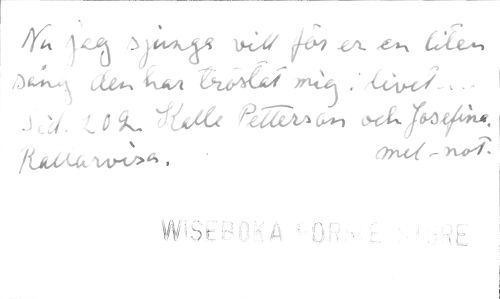 Nu jag sjunga vill för er en liten
sång den har tröstat mig i livet....
Sid. 202 Kalle Petterson och Josefina.
Rallarvisa. mel-not.
WISEBOKA